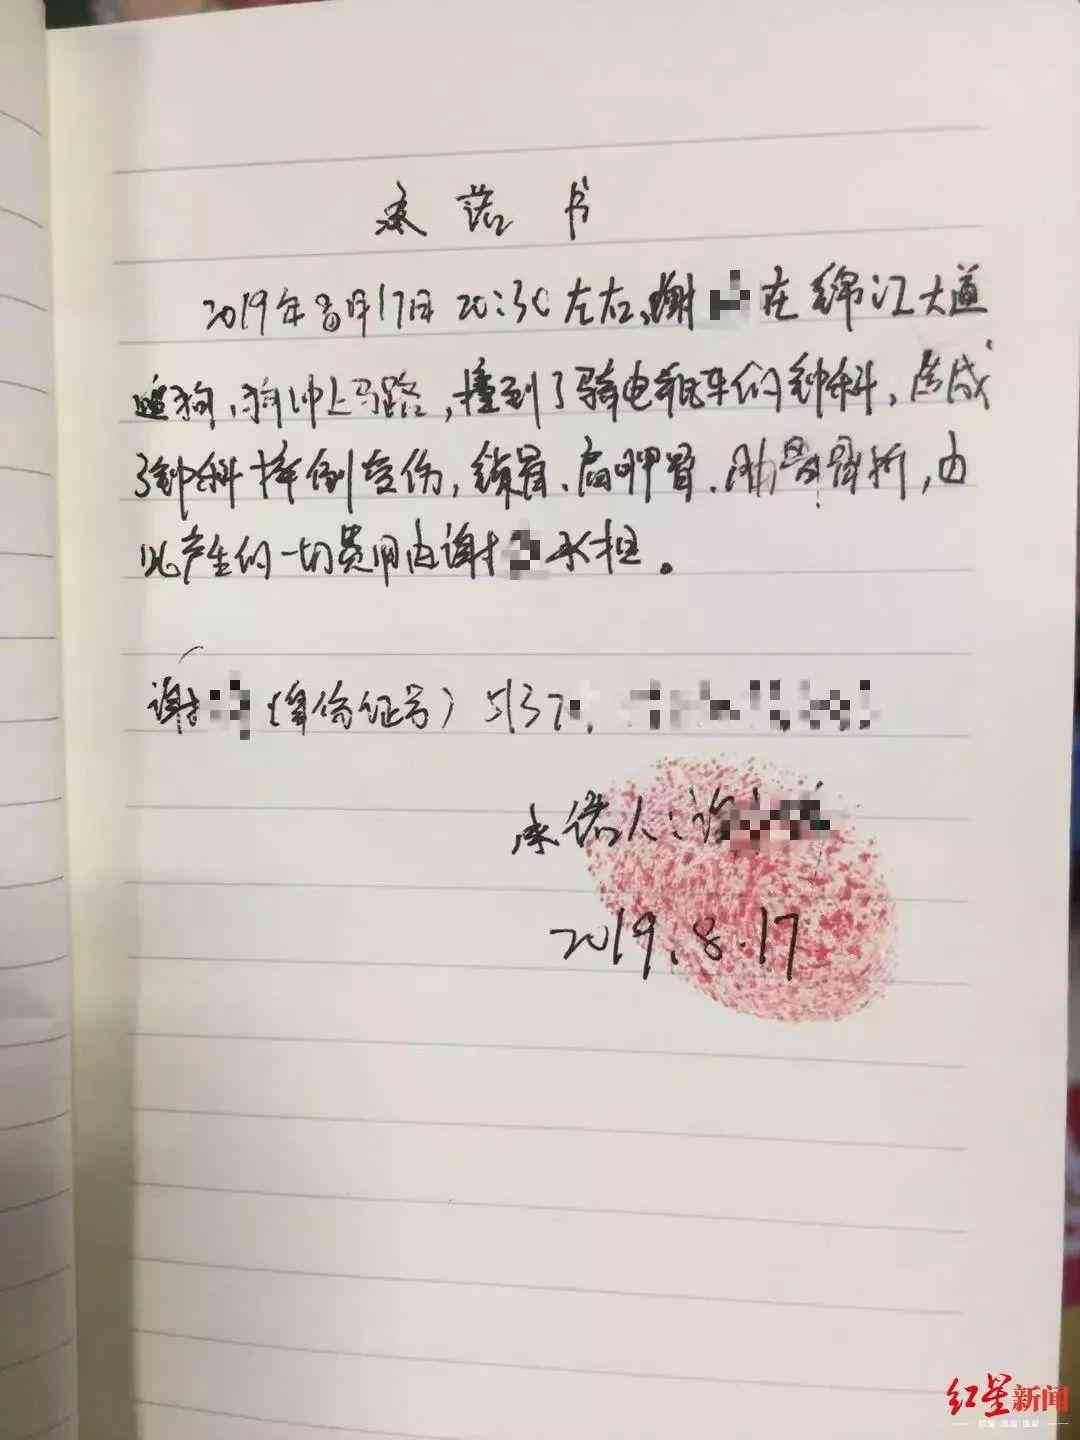 承诺书
2019年8月17日 20:30左右,谢 在锦江大道
遛狗,狗冲上马路,撞到了骑电瓶车的钟科,造成
了钟科摔倒受伤,锁骨、肩胛骨、肋骨骨折,由
此产生的一切费用由谢 承担。
谢 (身份证号) 5137
承诺人:谢
2019.8.17
红星新闻